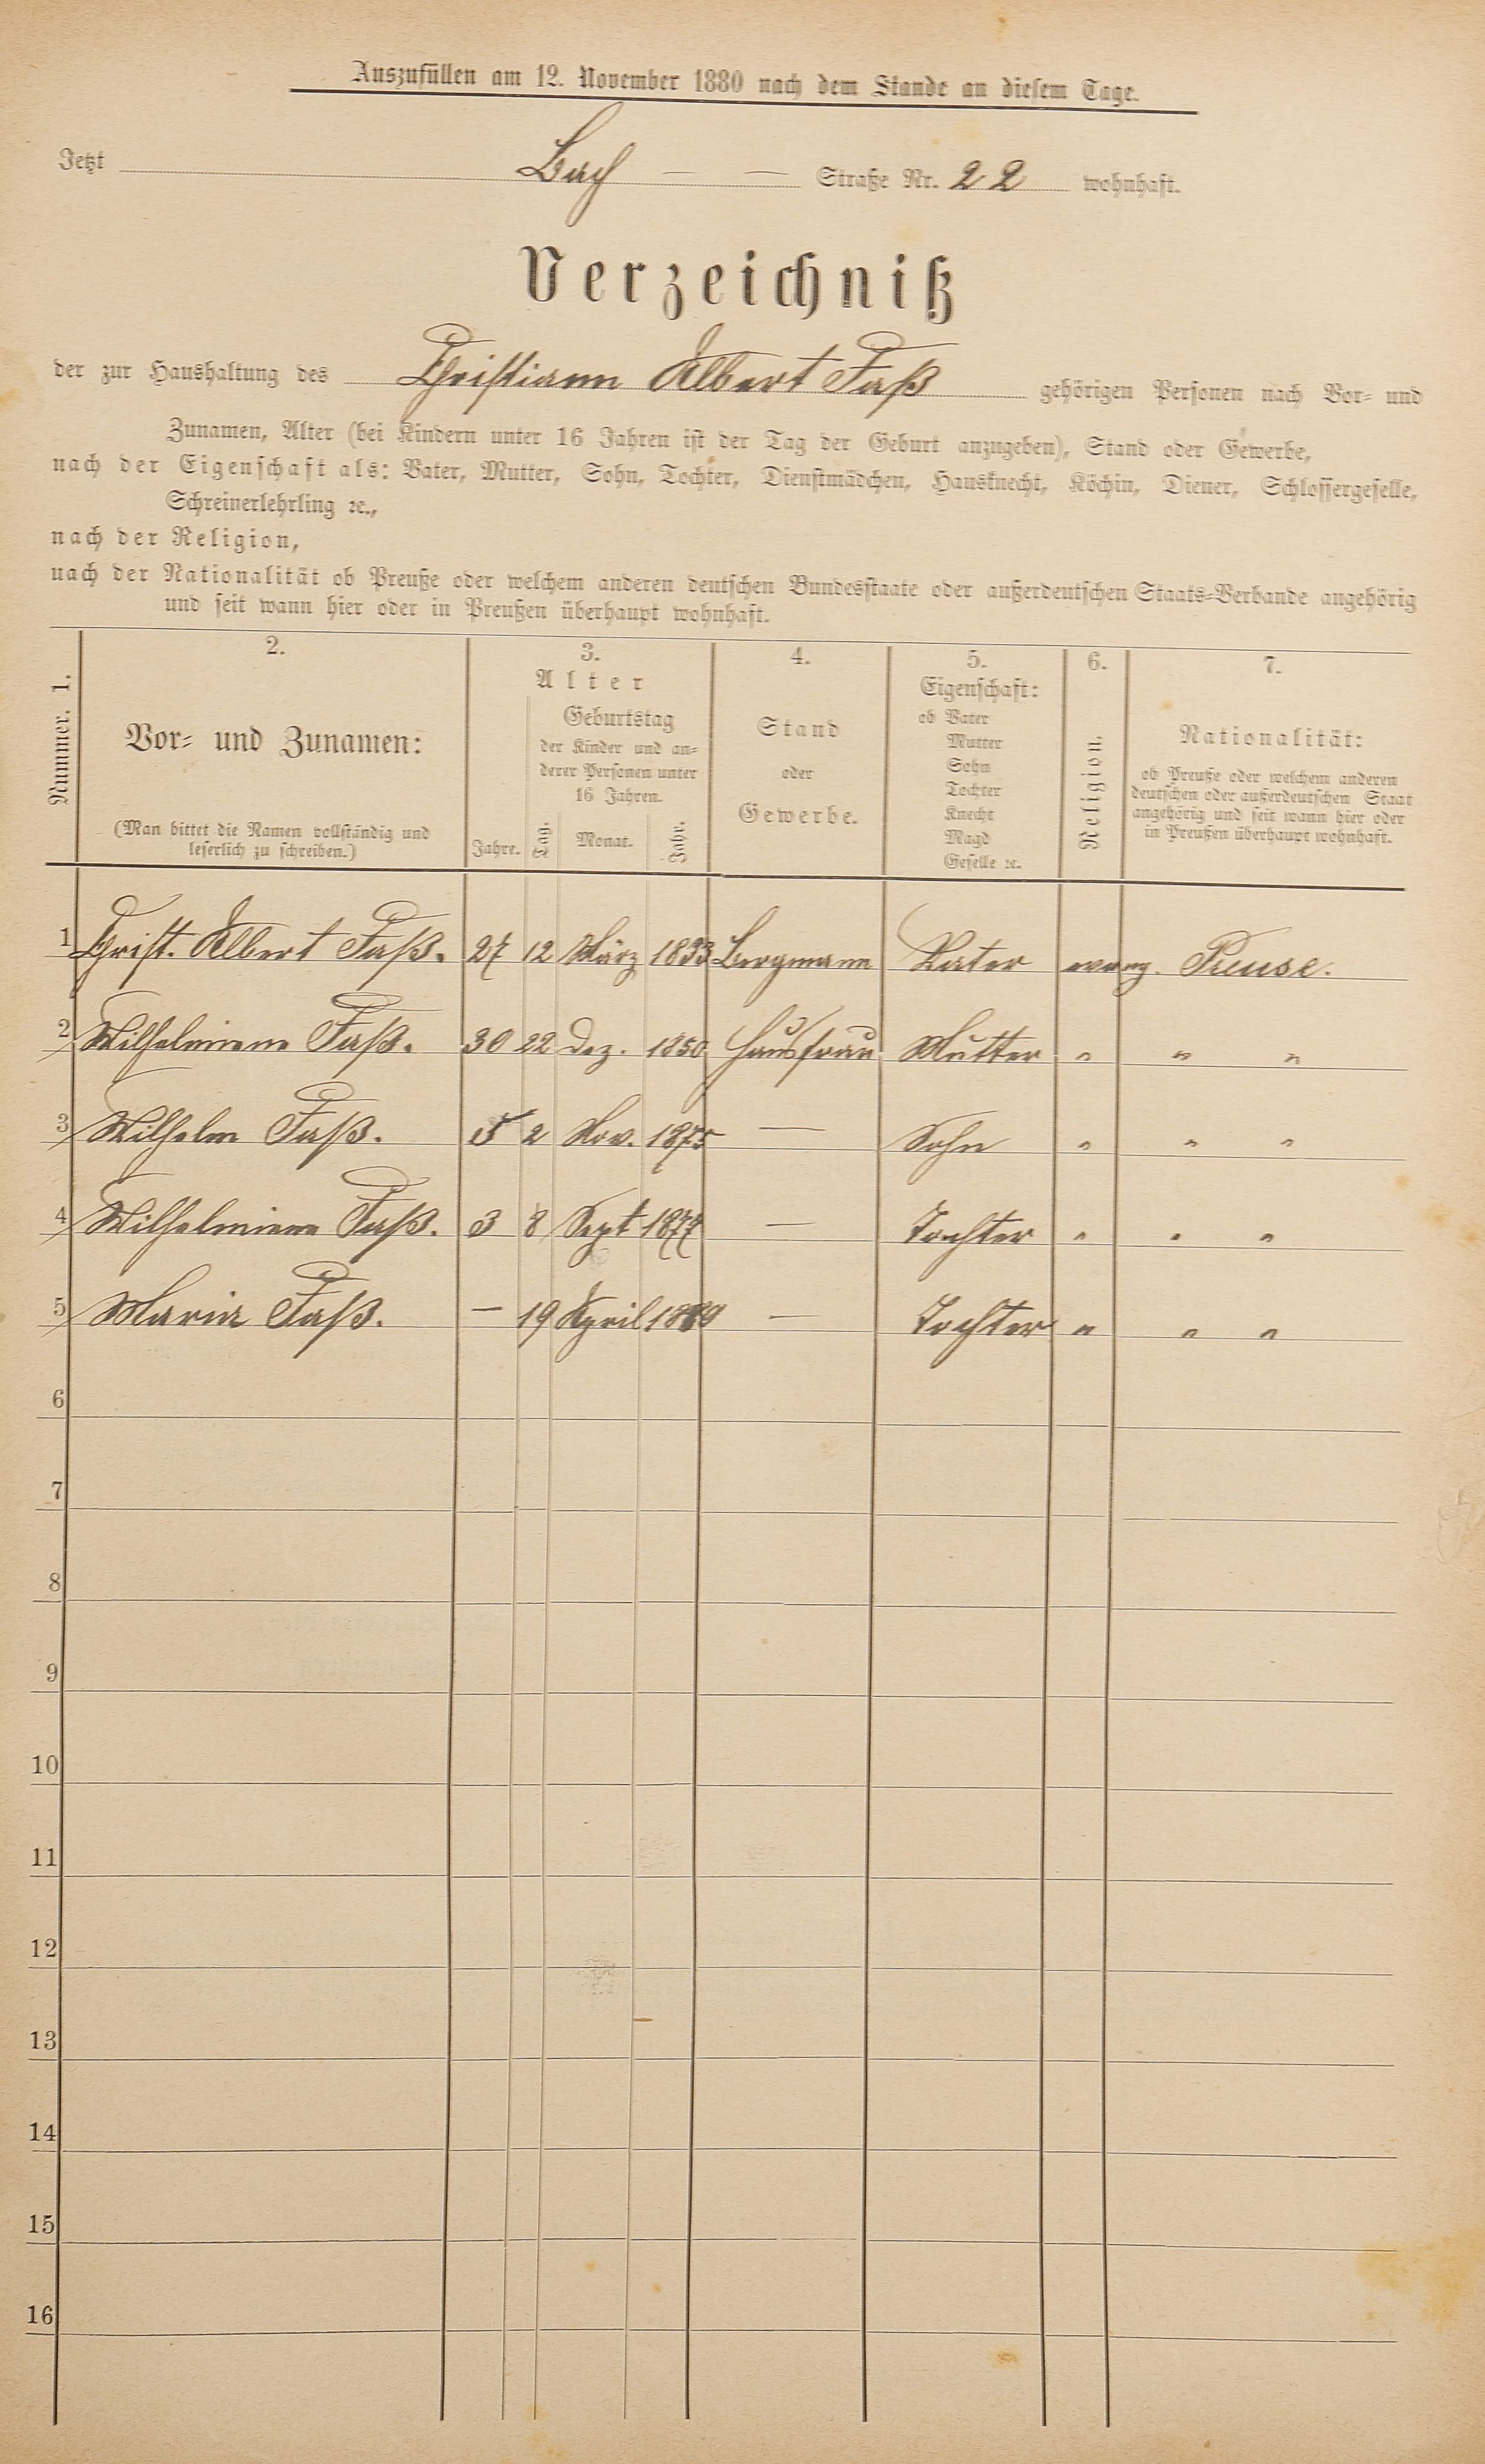 Auszufüllen am 12. November 1880 nach dem Stande an diesem Tage.
Jetzt Bach — — Straße Nr. 22 wohnhaft.
Verzeichniß
der zur Haushaltung des Christiann Albert Faß gehörigen Personen nach Vor- und
Zunamen, Alter (bei Kindern unter 16 Jahren ist der Tag der Geburt anzugeben), Stand oder Gewerbe,
nach der Eigenschaft als: Vater, Mutter, Sohn, Tochter, Dienstmädchen, Hausknecht, Köchin, Diener, Schlossergeselle,
Schreinerlehrling ꝛc.,
nach der Religion,
nach der Nationalität ob Preuße oder welchem anderen deutschen Bundesstaate oder außerdeutschen Staats-Verbande angehörig
und seit wann hier oder in Preußen überhaupt wohnhaft.
Nummer. 1.
2.
Vor- und Zunamen:
(Man bittet die Namen vollständig und
leserlich zu schreiben.)
3.
Alter
Geburtstag
der Kinder und an-
derer Personen unter
16 Jahren.
Jahre. Tag. Monat. Jahr.
4.
Stand
oder
Gewerbe.
5.
Eigenschaft:
ob Vater
Mutter
Sohn
Tochter
Knecht
Magd
Geselle ꝛc.
6.
Religion.
7.
Nationalität:
ob Preuße oder welchem anderen
deutschen oder außerdeutschen Staat
angehörig und seit wann hier oder
in Preußen überhaupt wohnhaft.
1 Christ. Albert Faß. 27 12 März Bergmann Vater evang. Preuse.
2 Wilhelmiene Faß. 30 22 Dez. 1850 Hausfrau Mutter " " "
3 Wilhelm Faß. 5 2 Nov. 1875 — Sohn " " "
4 Wilhelmiene Faß. 3 8 Sept 1877 — Tochter " " "
5 Maria Faß. — 19 April — Tochter " " "
6
7
8
9
10
11
12
13
14
15
16